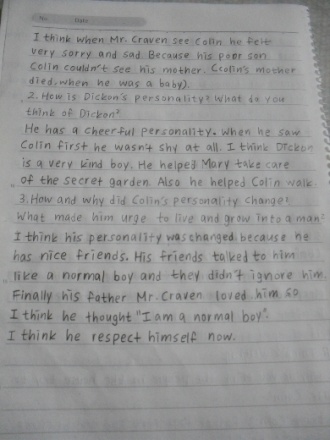 No. Date
I think when Mr. Craven see Colin he felt
very sorry and sad. Because his poor son
Colin couldn't see his mother. (Colin's mother
died, when he was a baby).
2. How is Dickon's personality? What do you
think of Dickon?
He has a cheerful personality. When he saw
Colin first he wasn't shy at all. I think Dickon
is a very kind boy. He helped Mary take care
of the secret garden. Also he helped Colin walk.
3. How and why did Colin's personality change?
What made him urge to live and grow into a man?
I think his personality was changed because he
has nice friends. His friends talked to him
like a normal boy and they didn't ignore him.
Finally his father Mr. Craven loved him so
I think he thought "I am a normal boy".
I think he respect himself now.